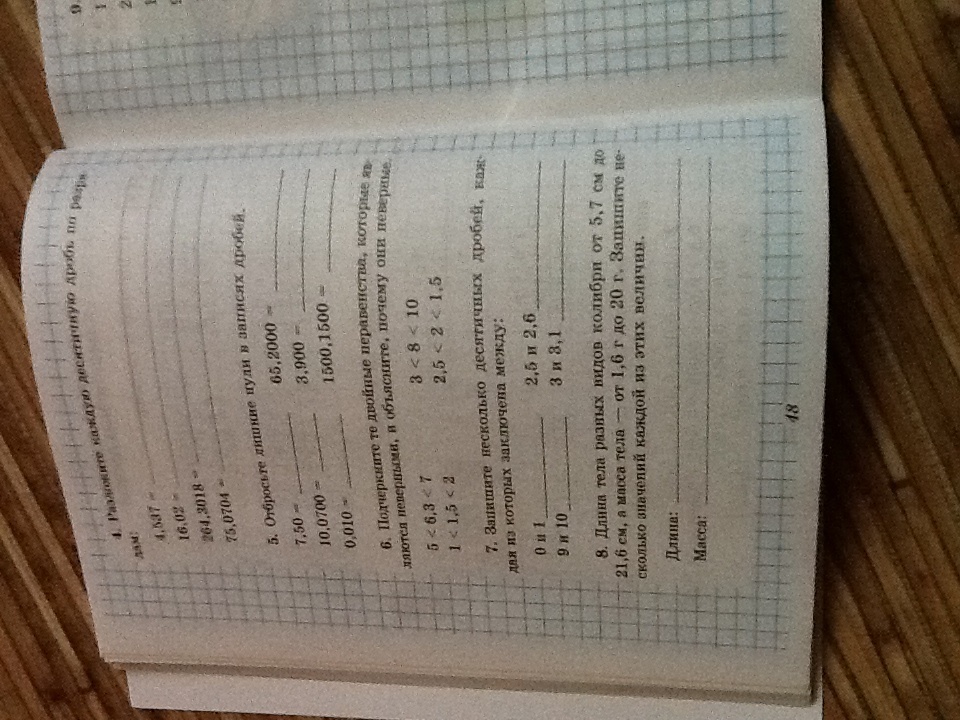 4. Разложите каждую десятичную дробь по разря-
дам:
4,537 =
16,02 =
264,3018 =
75,0704 =
5. Отбросьте лишние нули в записях дробей.
7,50 = 65,2000 =
10,0700 = 3,900 =
0,010 = 1500,1500 =
6. Подчеркните те двойные неравенства, которые яв-
ляются неверными, и объясните, почему они неверные.
5 < 6,3 < 7 3 < 8 < 10
1 < 1,5 < 2 2,5 < 2 < 1,5
7. Запишите несколько десятичных дробей, каж-
дая из которых заключена между:
0 и 1 2,5 и 2,6
9 и 10 3 и 3,1
8. Длина тела разных видов колибри от 5,7 см до
21,6 см, а масса тела — от 1,6 г до 20 г. Запишите не-
сколько значений каждой из этих величин.
Длина:
Масса:
48
9.
1
2